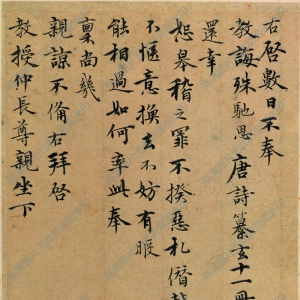 右啓數日不奉
教誨殊馳思唐詩纂玄十一冊
還幸
恕畢稽之罪不揆惡札僭
不愜意換去不妨有暇
能相過如何率此奉
稟尚幾
親諒不備右拜啓
教授仲長尊親坐下